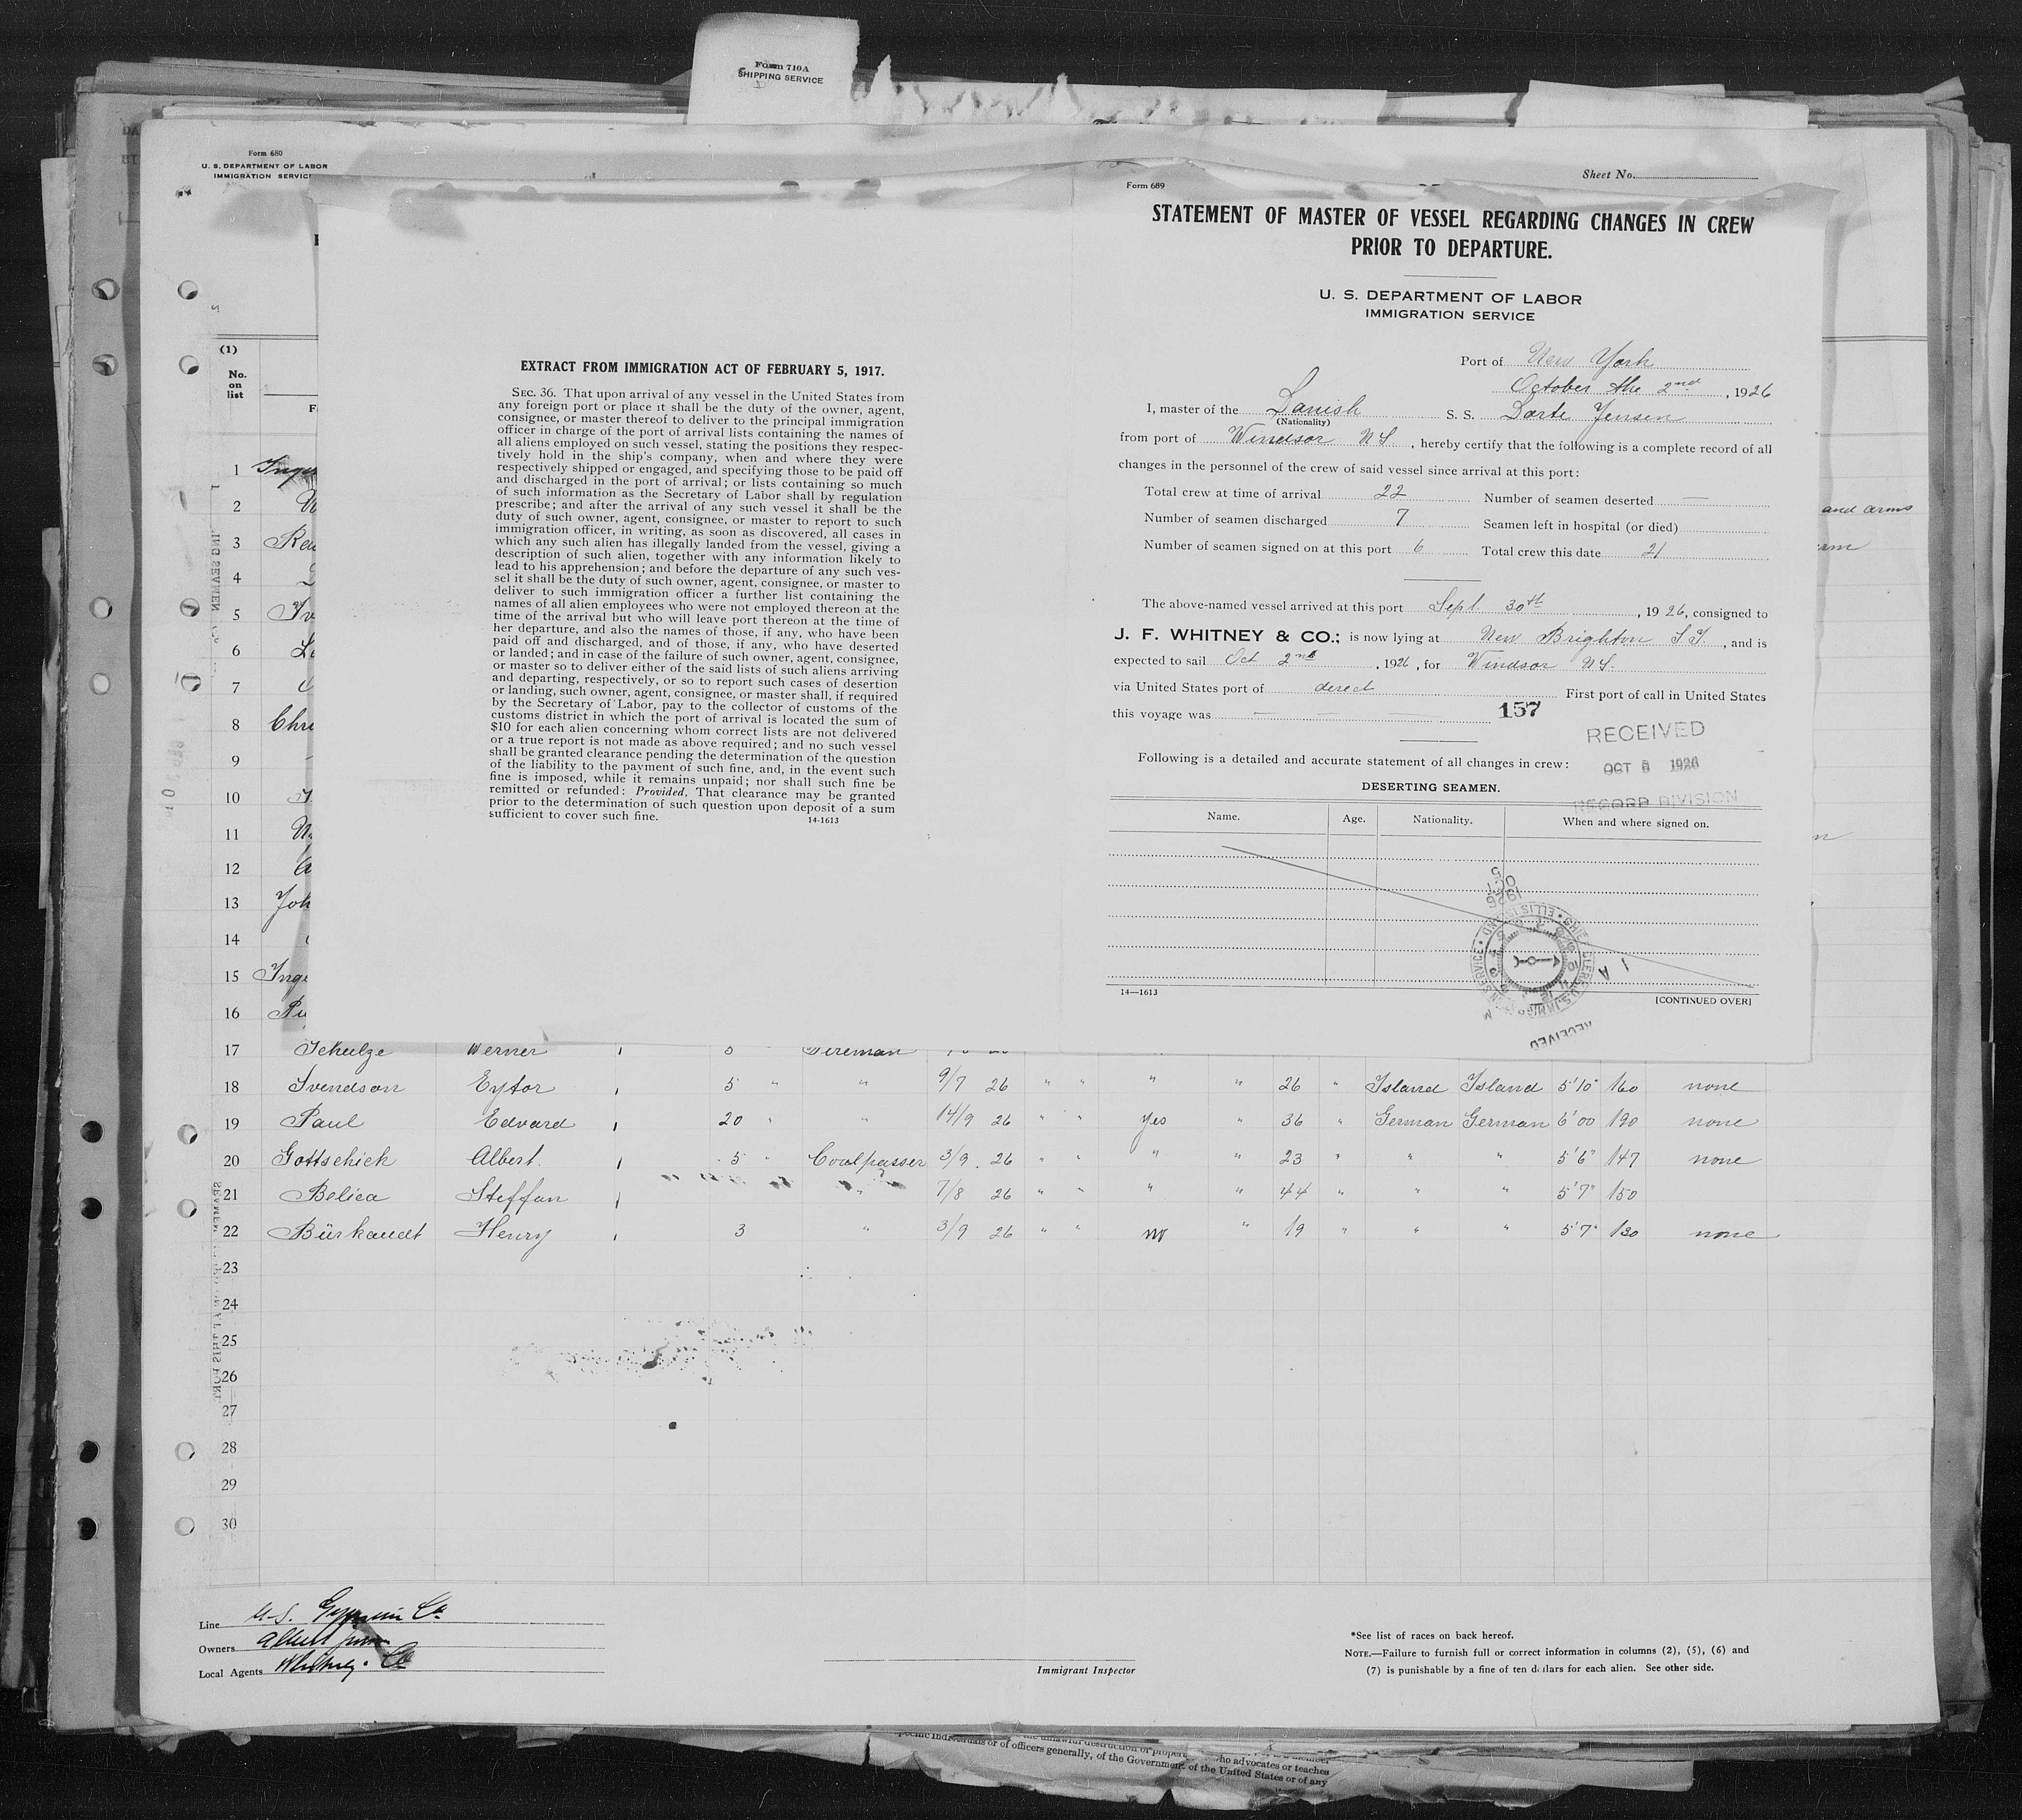 Form 710A
SHIPPING SERVICE
Form 680
U. S. DEPARTMENT OF LABOR
IMMIGRATION SERVICE
Sheet No.
(1)
No. on list
EXTRACT FROM IMMIGRATION ACT OF FEBRUARY 5, 1917.
SEC. 36. That upon arrival of any vessel in the United States from
any foreign port or place it shall be the duty of the owner, agent,
consignee, or master thereof to deliver to the principal immigration
officer in charge of the port of arrival lists containing the names of
all aliens employed on such vessel, stating the positions they respec-
tively hold in the ship's company, when and where they were
respectively shipped or engaged, and specifying those to be paid off
and discharged in the port of arrival; or lists containing so much
of such information as the Secretary of Labor shall by regulation
prescribe; and after the arrival of any such vessel it shall be the
duty of such owner, agent, consignee, or master to report to such
immigration officer, in writing, as soon as discovered, all cases in
which any such alien has illegally landed from the vessel, giving a
description of such alien, together with any information likely to
lead to his apprehension; and before the departure of any such ves-
sel it shall be the duty of such owner, agent, consignee, or master to
deliver to such immigration officer a further list containing the
names of all alien employees who were not employed thereon at the
time of the arrival but who will leave port thereon at the time of
her departure, and also the names of those, if any, who have been
paid off and discharged, and of those, if any, who have deserted
or landed; and in case of the failure of such owner, agent, consignee,
or master so to deliver either of the said lists of such aliens arriving
and departing, respectively, or so to report such cases of desertion
or landing, such owner, agent, consignee, or master shall, if required
by the Secretary of Labor, pay to the collector of customs of the
customs district in which the port of arrival is located the sum of
$10 for each alien concerning whom correct lists are not delivered
or a true report is not made as above required; and no such vessel
shall be granted clearance pending the determination of the question
of the liability to the payment of such fine, and, in the event such
fine is imposed, while it remains unpaid; nor shall such fine be
remitted or refunded: Provided, That clearance may be granted
prior to the determination of such question upon deposit of a sum
sufficient to cover such fine. 14-1613
Form 689
STATEMENT OF MASTER OF VESSEL REGARDING CHANGES IN CREW
PRIOR TO DEPARTURE.
U. S. DEPARTMENT OF LABOR
IMMIGRATION SERVICE
Port of New York
October the 2nd, 1926
I, master of the Danish S. S. Dorte Jensen
(Nationality)
from port of Windsor NS, hereby certify that the following is a complete record of all
changes in the personnel of the crew of said vessel since arrival at this port:
Total crew at time of arrival 22 Number of seamen deserted —
Number of seamen discharged 7 Seamen left in hospital (or died)
Number of seamen signed on at this port 6 Total crew this date 21
The above-named vessel arrived at this port Sept 30th, 1926, consigned to
J. F. WHITNEY & CO.; is now lying at New Brighton S I, and is
expected to sail Oct 2nd, 1926, for Windsor NS.
via United States port of derect First port of call in United States
this voyage was — — — 157
RECEIVED
OCT 5 1926
RECORD DIVISION
Following is a detailed and accurate statement of all changes in crew:
DESERTING SEAMEN.
Name. Age. Nationality. When and where signed on.
14—1613
[CONTINUED OVER]
OCT 5 1926
CHIEF CLERK U.S. IMMIGRATION SERVICE • ELLIS ISLAND
RECEIVED
and arms
1
2
3
4
5
6
7
8 Chri
9
10
11
12
13 Joh
14
15 Inge
16
17 Schulze Werner Fireman
18 Svendson Eytor 5 " " 9/7 26 " " " " 26 " Island Island 5'10" 160 none
19 Paul Edvard 20 " 14/9 26 " " Yes " 36 " German German 6'00 190 none
20 Gottschick Albert. 5 " Coalpasser 3/9 26 " " " " 23 " " " 5'6" 147 none
21 Belica Steffan " 7/8 26 " " " " 44 " " " 5'7" 150
22 Bürkandt Henry 3 " 3/9 26 " " no " 19 " " " 5'7" 130 none
23
24
25
26
27
28
29
30
Line U.S. Gypsum Co.
Owners Albert Jensen
Local Agents Whitney & Co
Immigrant Inspector
*See list of races on back hereof.
NOTE.—Failure to furnish full or correct information in columns (2), (5), (6) and
(7) is punishable by a fine of ten dollars for each alien. See other side.
who advocates or teaches
or of officers generally, of the Government of the United States or of any